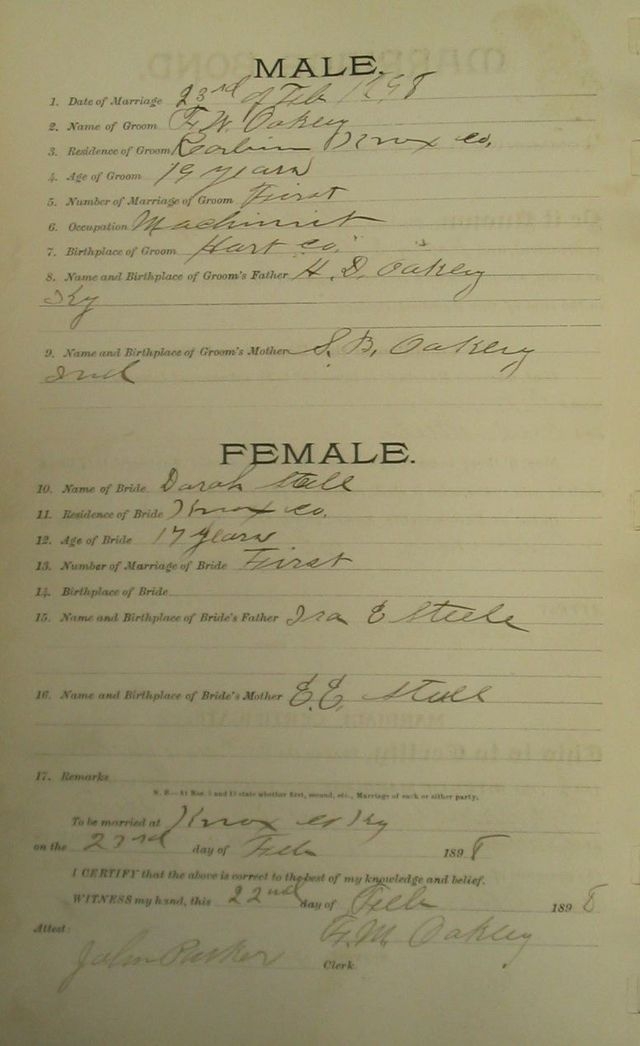 MALE.
1. Date of Marriage 23rd of Feb 1898
2. Name of Groom F. W. Oakley
3. Residence of Groom Corbin Knox Co.
4. Age of Groom 19 years
5. Number of Marriage of Groom First
6. Occupation Machinist
7. Birthplace of Groom Hart Co.
8. Name and Birthplace of Groom's Father H. D. Oakley
Ky
9. Name and Birthplace of Groom's Mother S. B. Oakley
Ind
FEMALE.
10. Name of Bride Darah Steele
11. Residence of Bride Knox Co.
12. Age of Bride 17 years
13. Number of Marriage of Bride First
14. Birthplace of Bride
15. Name and Birthplace of Bride's Father Ira E Steele
16. Name and Birthplace of Bride's Mother E. E. Steele
17. Remarks
N. B.—At Nos. 5 and 13 state whether first, second, etc., Marriage of each or either party.
To be married at Knox Co Ky
on the 23rd day of Feb 1898
I CERTIFY that the above is correct to the best of my knowledge and belief.
WITNESS my hand, this 22nd day of Feb 1898
Attest: F. M. Oakley
John Parker Clerk